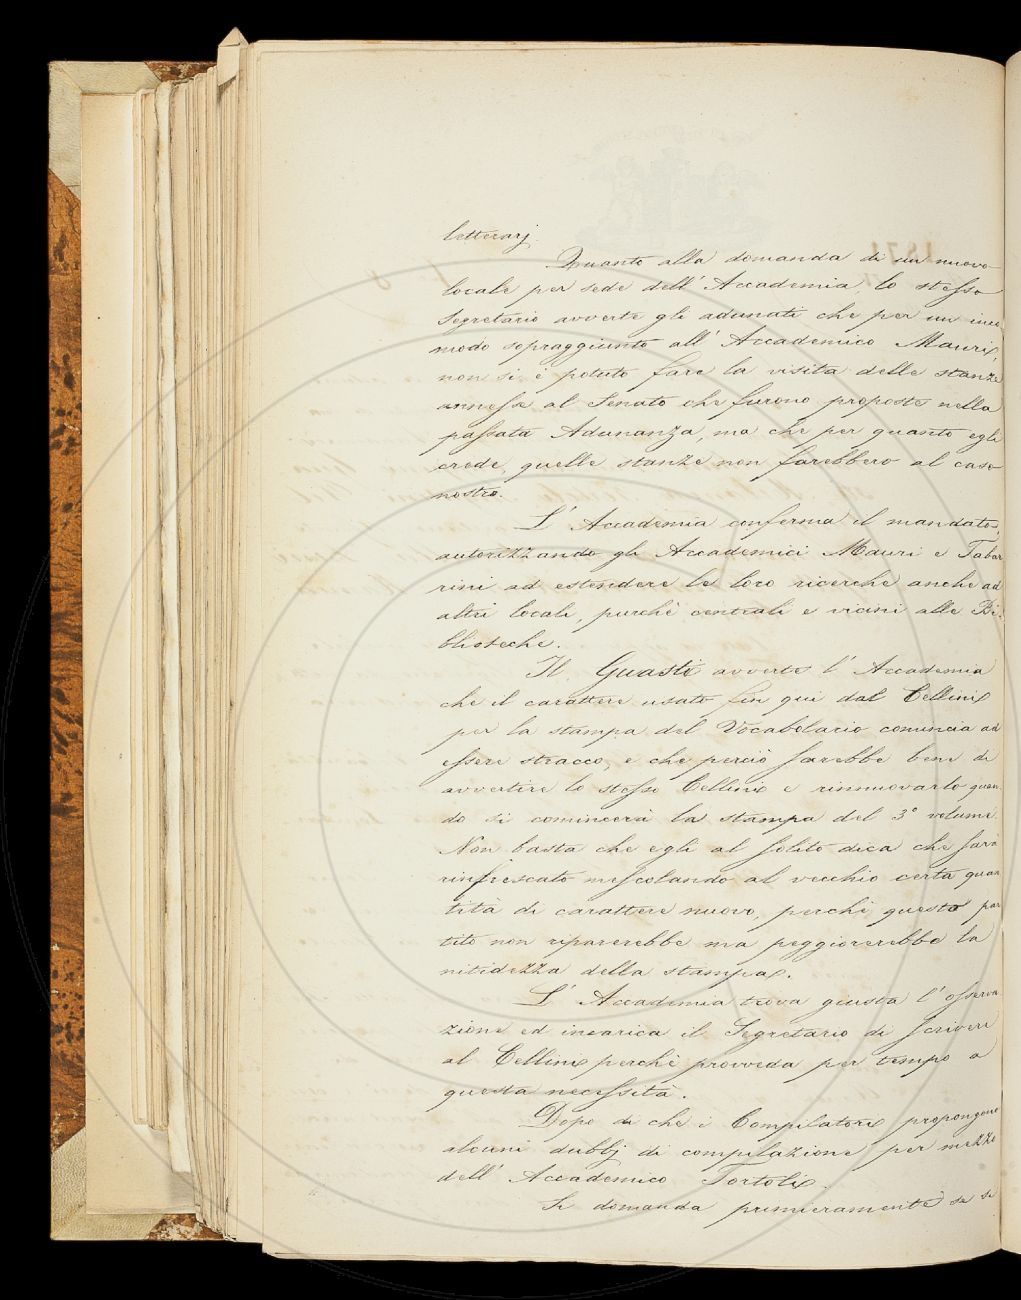 letterarj.
Quanto alla domanda di un nuovo
locale per sede dell' Accademia, lo stesso
Segretario avverte gli adunati che per un inco
modo sopraggiunto all' Accademico Mauri,
non si è potuto fare la visita delle stanze
annesse al Senato che furono proposte nella
passata Adunanza, ma che per quanto egli
crede, quelle stanze non farebbero al caso
nostro.
L' Accademia conferma il mandato,
autorizzando gli Accademici Mauri e Tabar
rini ad estendere le loro ricerche anche ad
altri locali, purchè centrali e vicini alle Bi-
blioteche.
Il Guasti avverte l' Accademia
che il carattere usato fin qui dal Cellini
per la stampa del Vocabolario comincia ad
essere stracco, e che perciò sarebbe bene di
avvertire lo stesso Cellini e rinnuovarlo quan-
do si comincerà la stampa del 3° volume.
Non basta che egli al solito dica che sarà
rinfrescato mescolando al vecchio certa quan
tità di carattere nuovo, perchè questo par
tito non riparerebbe ma peggiorerebbe la
nitidezza della stampa.
L' Accademia trova giusta l' osserva
zione ed incarica il Segretario di scrivere
al Cellini perchè provveda per tempo a
questa necessità.
Dopo di che i Compilatori propongono
alcuni dubbj di compilazione per mezzo
dell' Accademico Tortoli.
Si domanda primieramente se si